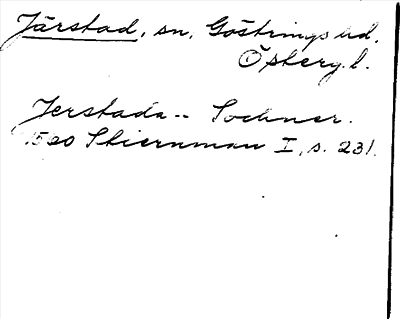 Järstad, sn, Göstrings hd.
Östergl.
Jerstada -- Sochner.
1520 Stiernman I, s. 231.